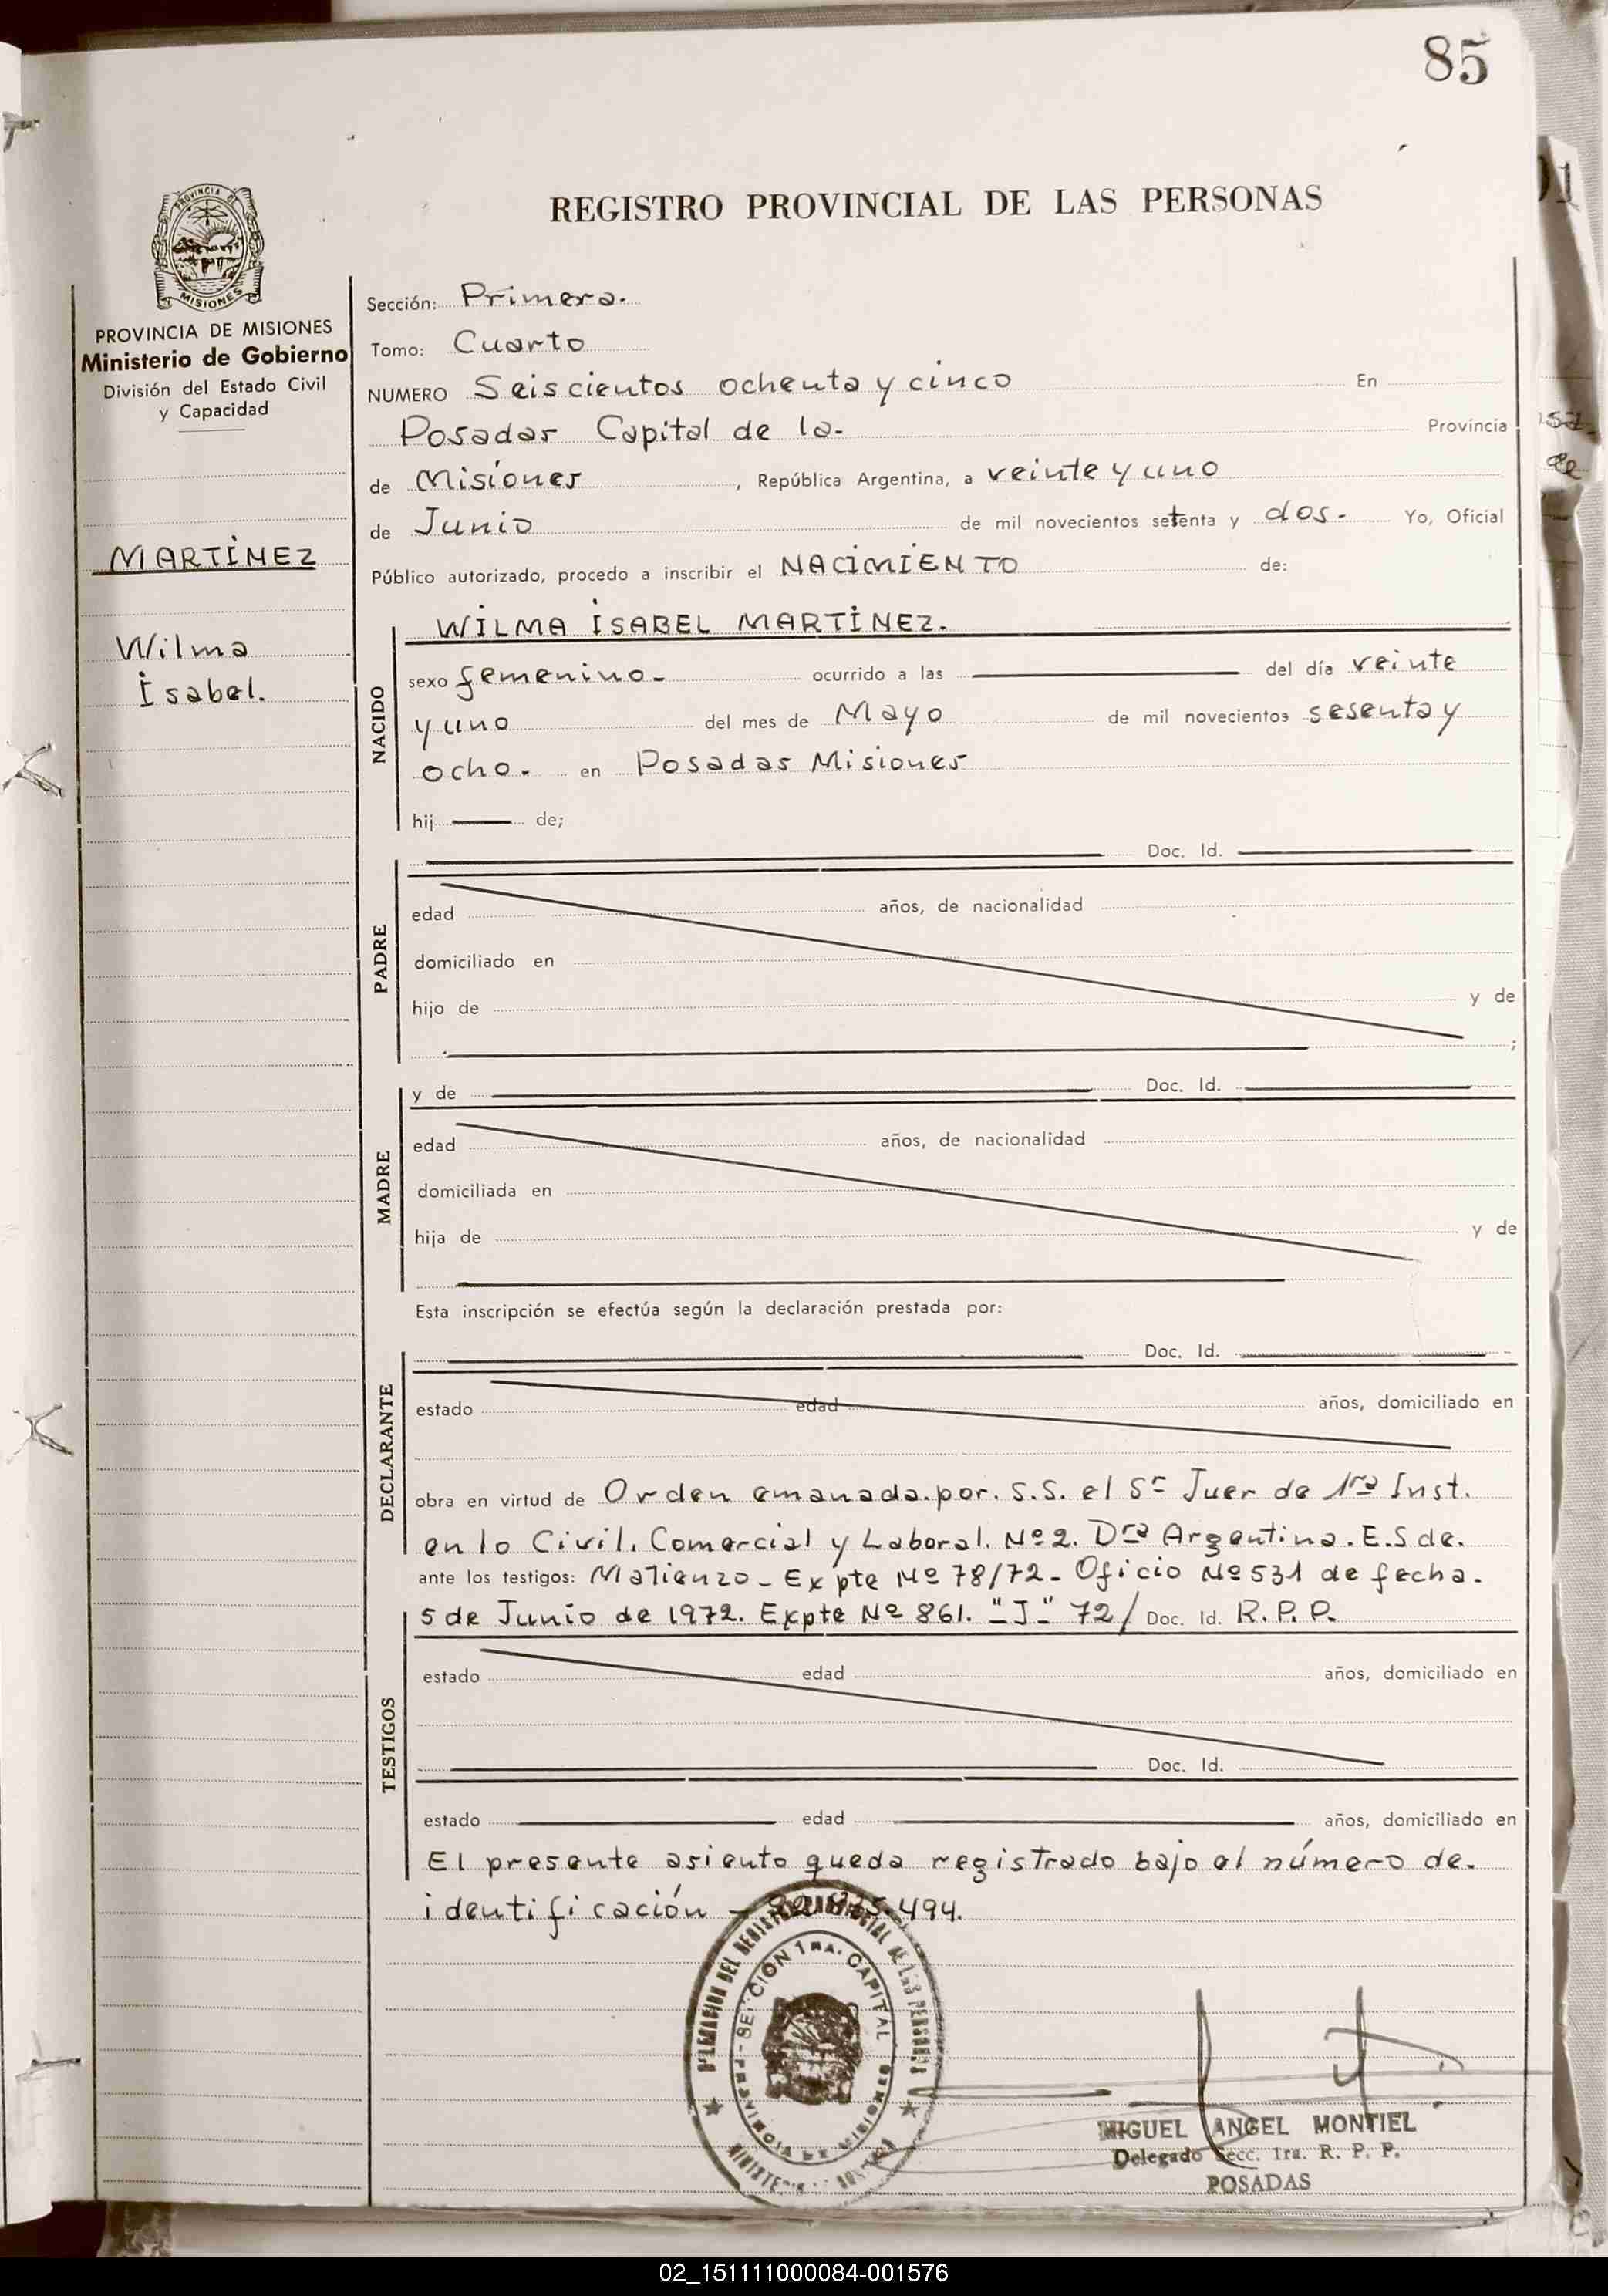 85
REGISTRO PROVINCIAL DE LAS PERSONAS
PROVINCIA DE
MISIONES
PROVINCIA DE MISIONES
Ministerio de Gobierno
División del Estado Civil
y Capacidad
MARTÍNEZ
Wilma
Isabel.
Sección: Primera.
Tomo: Cuarto
NUMERO Seiscientos ochenta y cinco En
Posadas Capital de la- Provincia
de Misiones, República Argentina, a veinte y uno
de Junio de mil novecientos setenta y dos. Yo, Oficial
Público autorizado, procedo a inscribir el NACIMIENTO de:
WILMA ISABEL MARTÍNEZ.
NACIDO
sexo femenino. ocurrido a las del día veinte
y uno del mes de Mayo de mil novecientos sesenta y
ocho. en Posadas Misiones
hij de;
Doc. Id.
PADRE
edad años, de nacionalidad
domiciliado en
hijo de y de
;
y de Doc. Id.
MADRE
edad años, de nacionalidad
domiciliada en
hija de y de
Esta inscripción se efectúa según la declaración prestada por:
Doc. Id.
DECLARANTE
estado edad años, domiciliado en
obra en virtud de Orden emanada por. S.S. el Sr Juez de 1ra Inst.
en lo Civil, Comercial y Laboral. Nº 2. Dra Argentina. E. S de.
ante los testigos: Matienzo - Expte Nº 78/72 - Oficio Nº 531 de fecha.
5 de Junio de 1972. Expte Nº 861. "J" 72/ Doc. Id. R. P. P.
TESTIGOS
estado edad años, domiciliado en
Doc. Id.
estado edad años, domiciliado en
El presente asiento queda registrado bajo el número de.
identificación - 494.
DELEGACION DEL REGISTRO PROVINCIAL DE LAS PERSONAS
SECCION 1RA. CAPITAL
PROVINCIA DE MISIONES
MIGUEL ANGEL MONTIEL
Delegado Secc. 1ra. R. P. P.
POSADAS
02_151111000084-001576